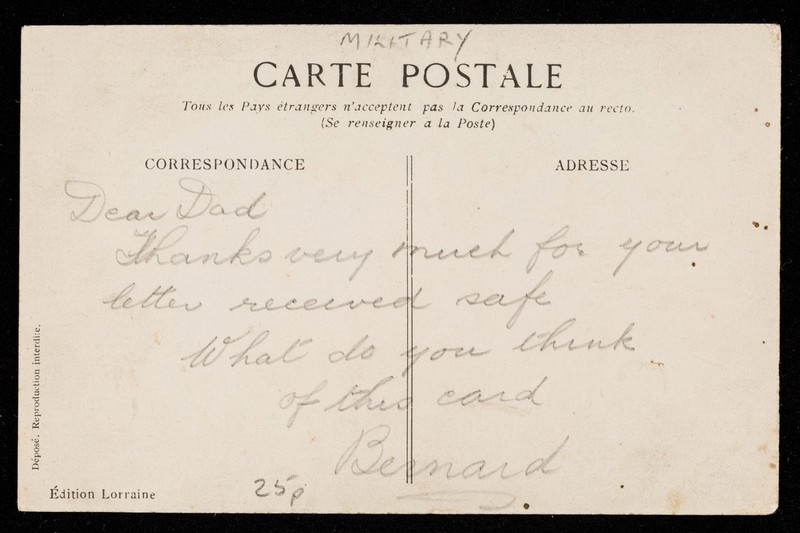 MILITARY
CARTE POSTALE
Tous les Pays étrangers n'acceptent pas la Correspondance au recto.
(Se renseigner a la Poste)
CORRESPONDANCE
ADRESSE
Dear Dad
Thanks very much for your
letter received safe
What do you think
of this card
Bernard
25p
Édition Lorraine
Déposé. Reproduction interdite.